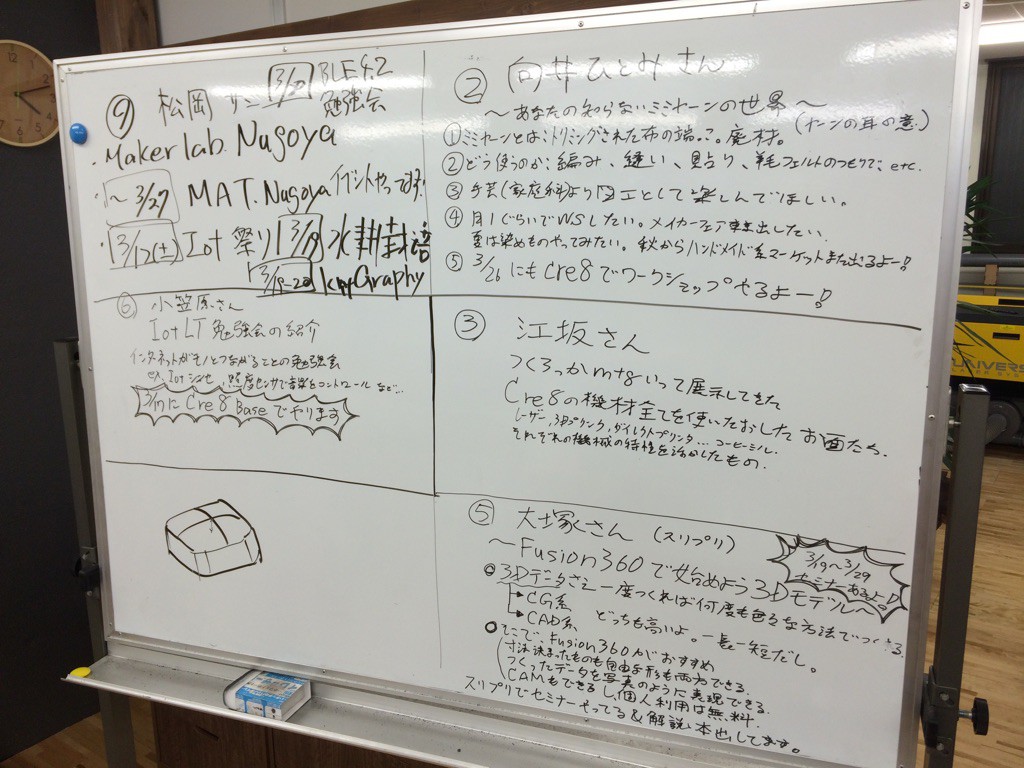 ⑨ 松岡さん 3/20 BLE4.2
勉強会
・Makerlab. Nagoya
・〜3/27 MAT.Nagoya イベントやってます
・3/12(土) Iot 祭り 3/19 水耕栽培
3/19-20
② 向井ひとみさん
〜あなたの知らないミミヤーンの世界〜
(ヤーンの耳の意)
①ミミヤーンとは、トリミングされた布の端っこ。廃材。
②どう使うのか、編み、縫い、貼り、羊毛フェルトのつもりで、etc.
③ 手芸(家庭科)より図工として楽しんでほしい。
④ 月1ぐらいでWSしたい。メイカーズバザール出したい。
夏は染めものやってみたい。秋からハンドメイド系マーケットまた出るよー!
⑤ 3/26にもcre8でワークショップやるよー!
⑥ 小笠原さん
IotLT 勉強会の紹介
インターネットがモノとつながることの勉強会
ex. Iot 照度センサで音楽をコントロール など…
3/17に Cre8 Base でやります
③ 江坂さん
つくろっか m+gいって展示してきた
Cre8の機材全てを使いたおしたお面たち.
レーザー, 3Dプリンタ, ダイレクトプリンタ… コーヒーミル.
それぞれの機械の特性を活かしたもの.
⑤ 大塚さん (スリプリ)
3/19〜3/29
セミナーあるよー!
〜Fusion360で始めよう3Dモデル〜
3Dデータさえ一度つくれば何度も色々な方法でつくれる
CG系
CAD系 どっちも高いよ。一長一短だし。
そこで、Fusion360がおすすめ
寸法決まったものも自由な形も両方できる.
つくったデータを写真のように表現できる.
CAMもできるし、個人利用は無料.
スリプリでセミナーやってる&解説本出してます。